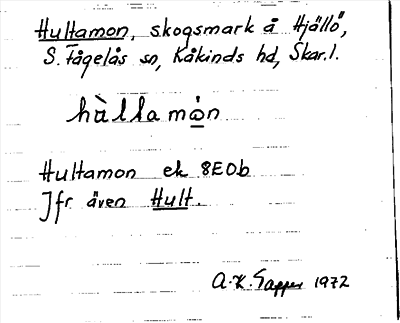 Hultamon, skogsmark å Hjällö,
S. Fågelås sn, Kåkinds hd, Skar. l.
hàllamo̱n
Hultamon ek 8E0b
Jfr även Hult.
A.K. 1972